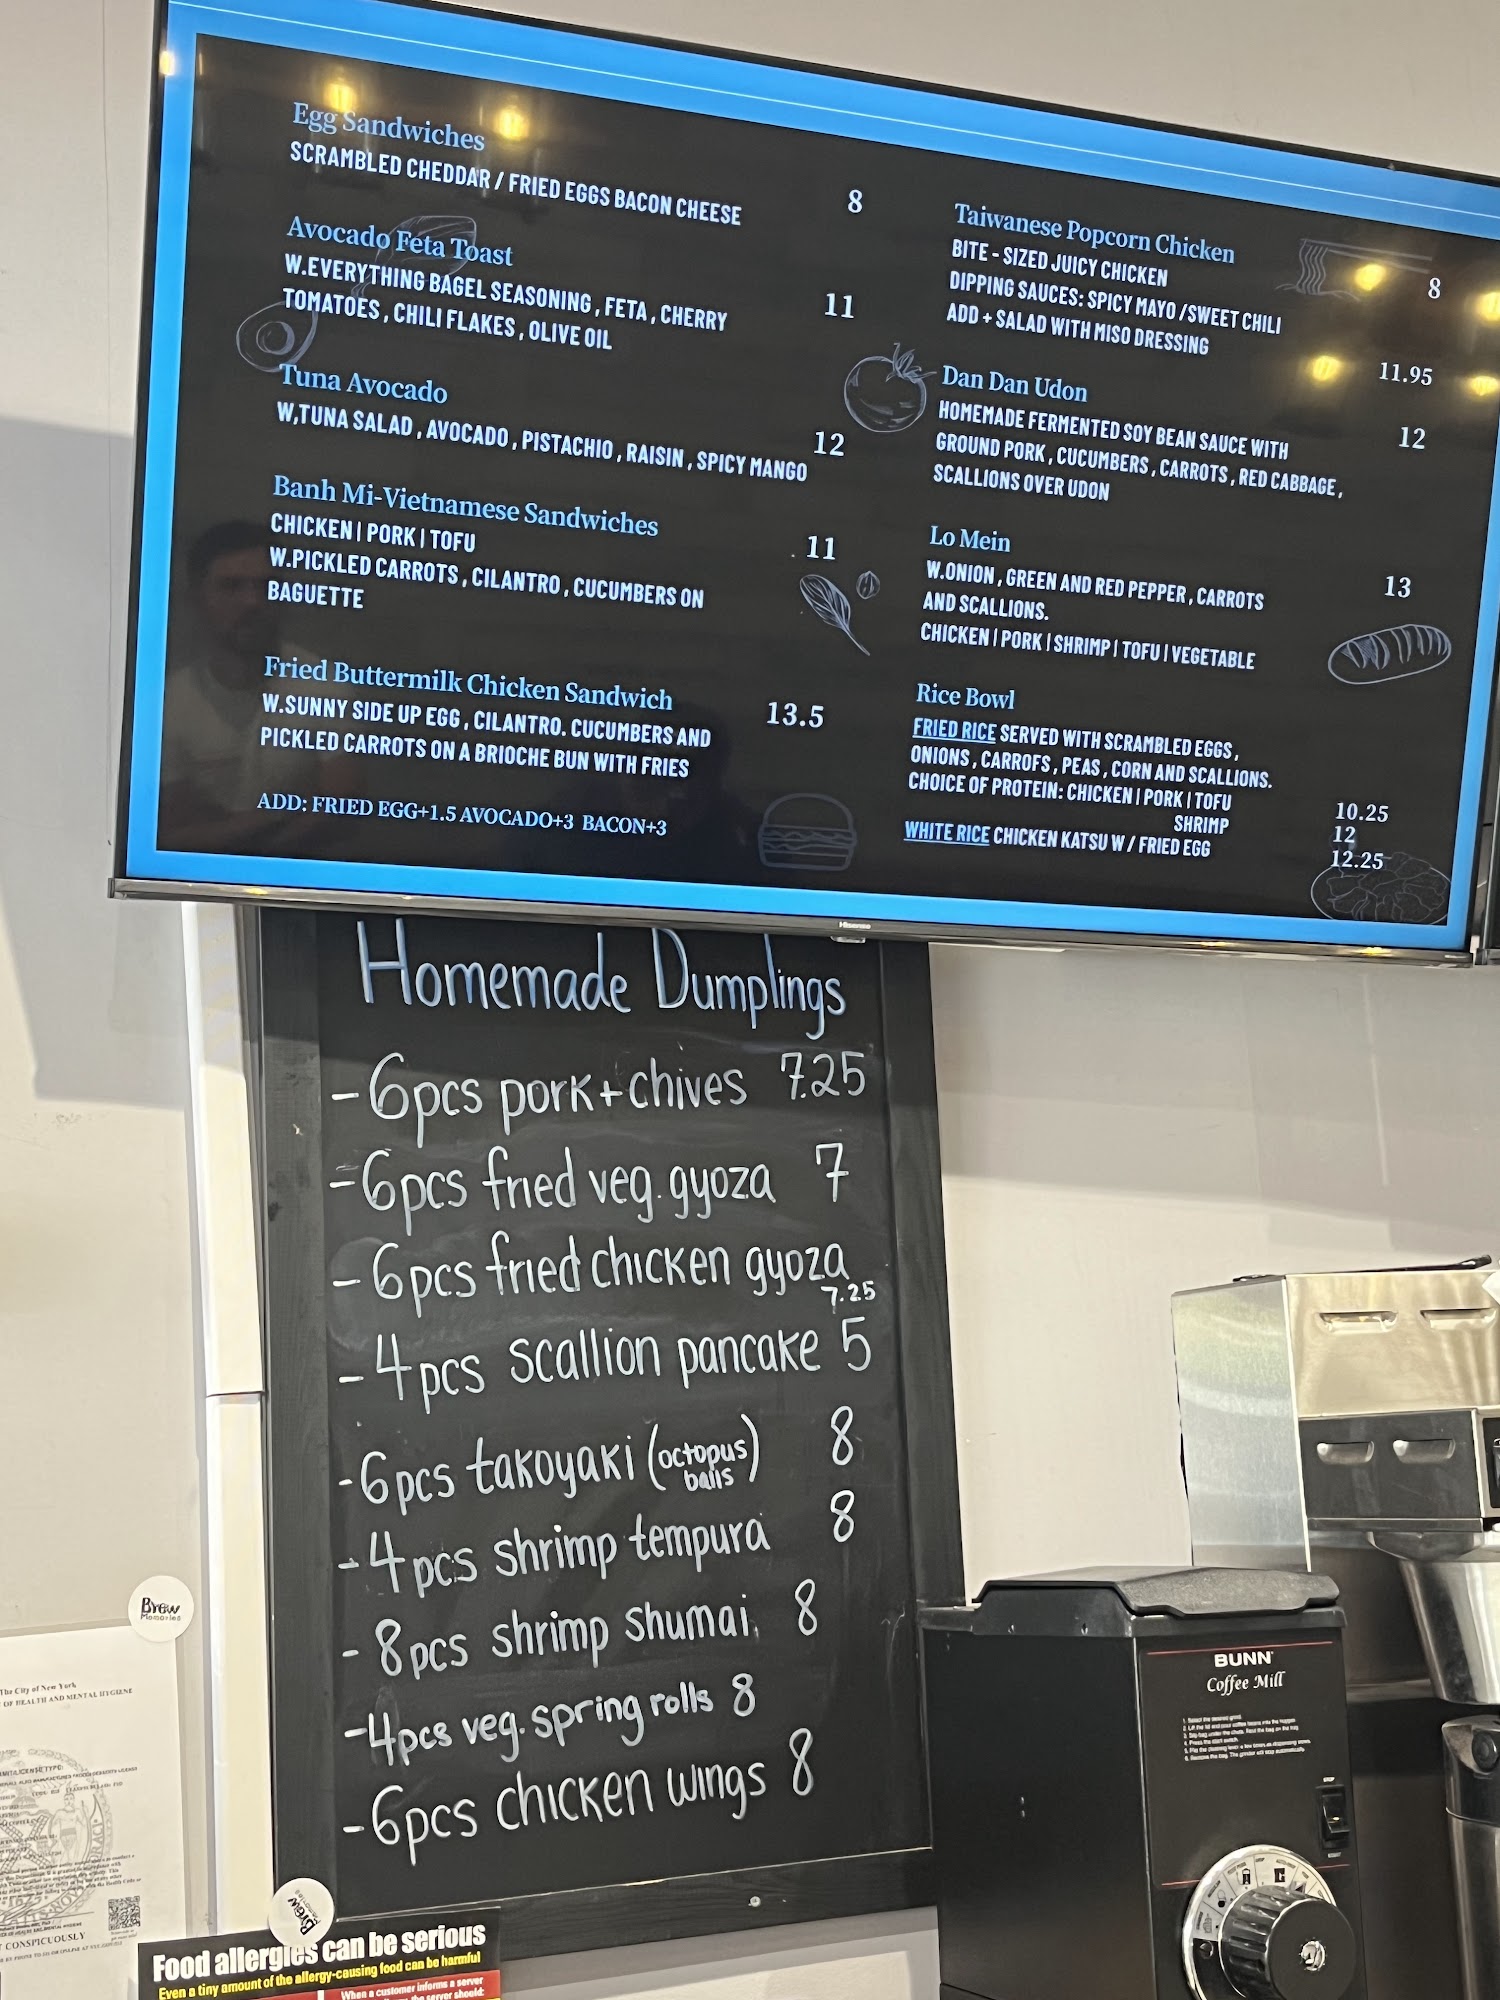 Egg Sandwiches
SCRAMBLED CHEDDAR / FRIED EGGS BACON CHEESE 8
Avocado Feta Toast
W.EVERYTHING BAGEL SEASONING , FETA , CHERRY 11
TOMATOES , CHILI FLAKES , OLIVE OIL
Tuna Avocado
W,TUNA SALAD , AVOCADO , PISTACHIO , RAISIN , SPICY MANGO 12
Banh Mi-Vietnamese Sandwiches
CHICKEN | PORK | TOFU 11
W.PICKLED CARROTS , CILANTRO , CUCUMBERS ON
BAGUETTE
Fried Buttermilk Chicken Sandwich
W.SUNNY SIDE UP EGG , CILANTRO. CUCUMBERS AND 13.5
PICKLED CARROTS ON A BRIOCHE BUN WITH FRIES
ADD: FRIED EGG+1.5 AVOCADO+3 BACON+3
Taiwanese Popcorn Chicken
BITE - SIZED JUICY CHICKEN 8
DIPPING SAUCES: SPICY MAYO /SWEET CHILI
ADD + SALAD WITH MISO DRESSING 11.95
Dan Dan Udon
HOMEMADE FERMENTED SOY BEAN SAUCE WITH 12
GROUND PORK , CUCUMBERS , CARROTS , RED CABBAGE ,
SCALLIONS OVER UDON
Lo Mein
W.ONION , GREEN AND RED PEPPER , CARROTS 13
AND SCALLIONS.
CHICKEN | PORK | SHRIMP | TOFU | VEGETABLE
Rice Bowl
FRIED RICE SERVED WITH SCRAMBLED EGGS ,
ONIONS , CARROFS , PEAS , CORN AND SCALLIONS.
CHOICE OF PROTEIN: CHICKEN | PORK | TOFU 10.25
SHRIMP 12
WHITE RICE CHICKEN KATSU W / FRIED EGG 12.25
Hisense
Homemade Dumplings
- 6pcs pork+chives 7.25
- 6pcs fried veg. gyoza 7
- 6pcs fried chicken gyoza
7.25
- 4pcs scallion pancake 5
- 6pcs takoyaki (octopus
balls) 8
- 4pcs shrimp tempura 8
- 8pcs shrimp shumai. 8
- 4pcs veg. spring rolls 8
- 6pcs chicken wings 8
Brew
Memories
The City of New York
OF HEALTH AND MENTAL HYGIENE
CONSPICUOUSLY
Brew
Food allergies can be serious
Even a tiny amount of the allergy-causing food can be harmful
When a customer informs a server
the server should:
BUNN
Coffee Mill